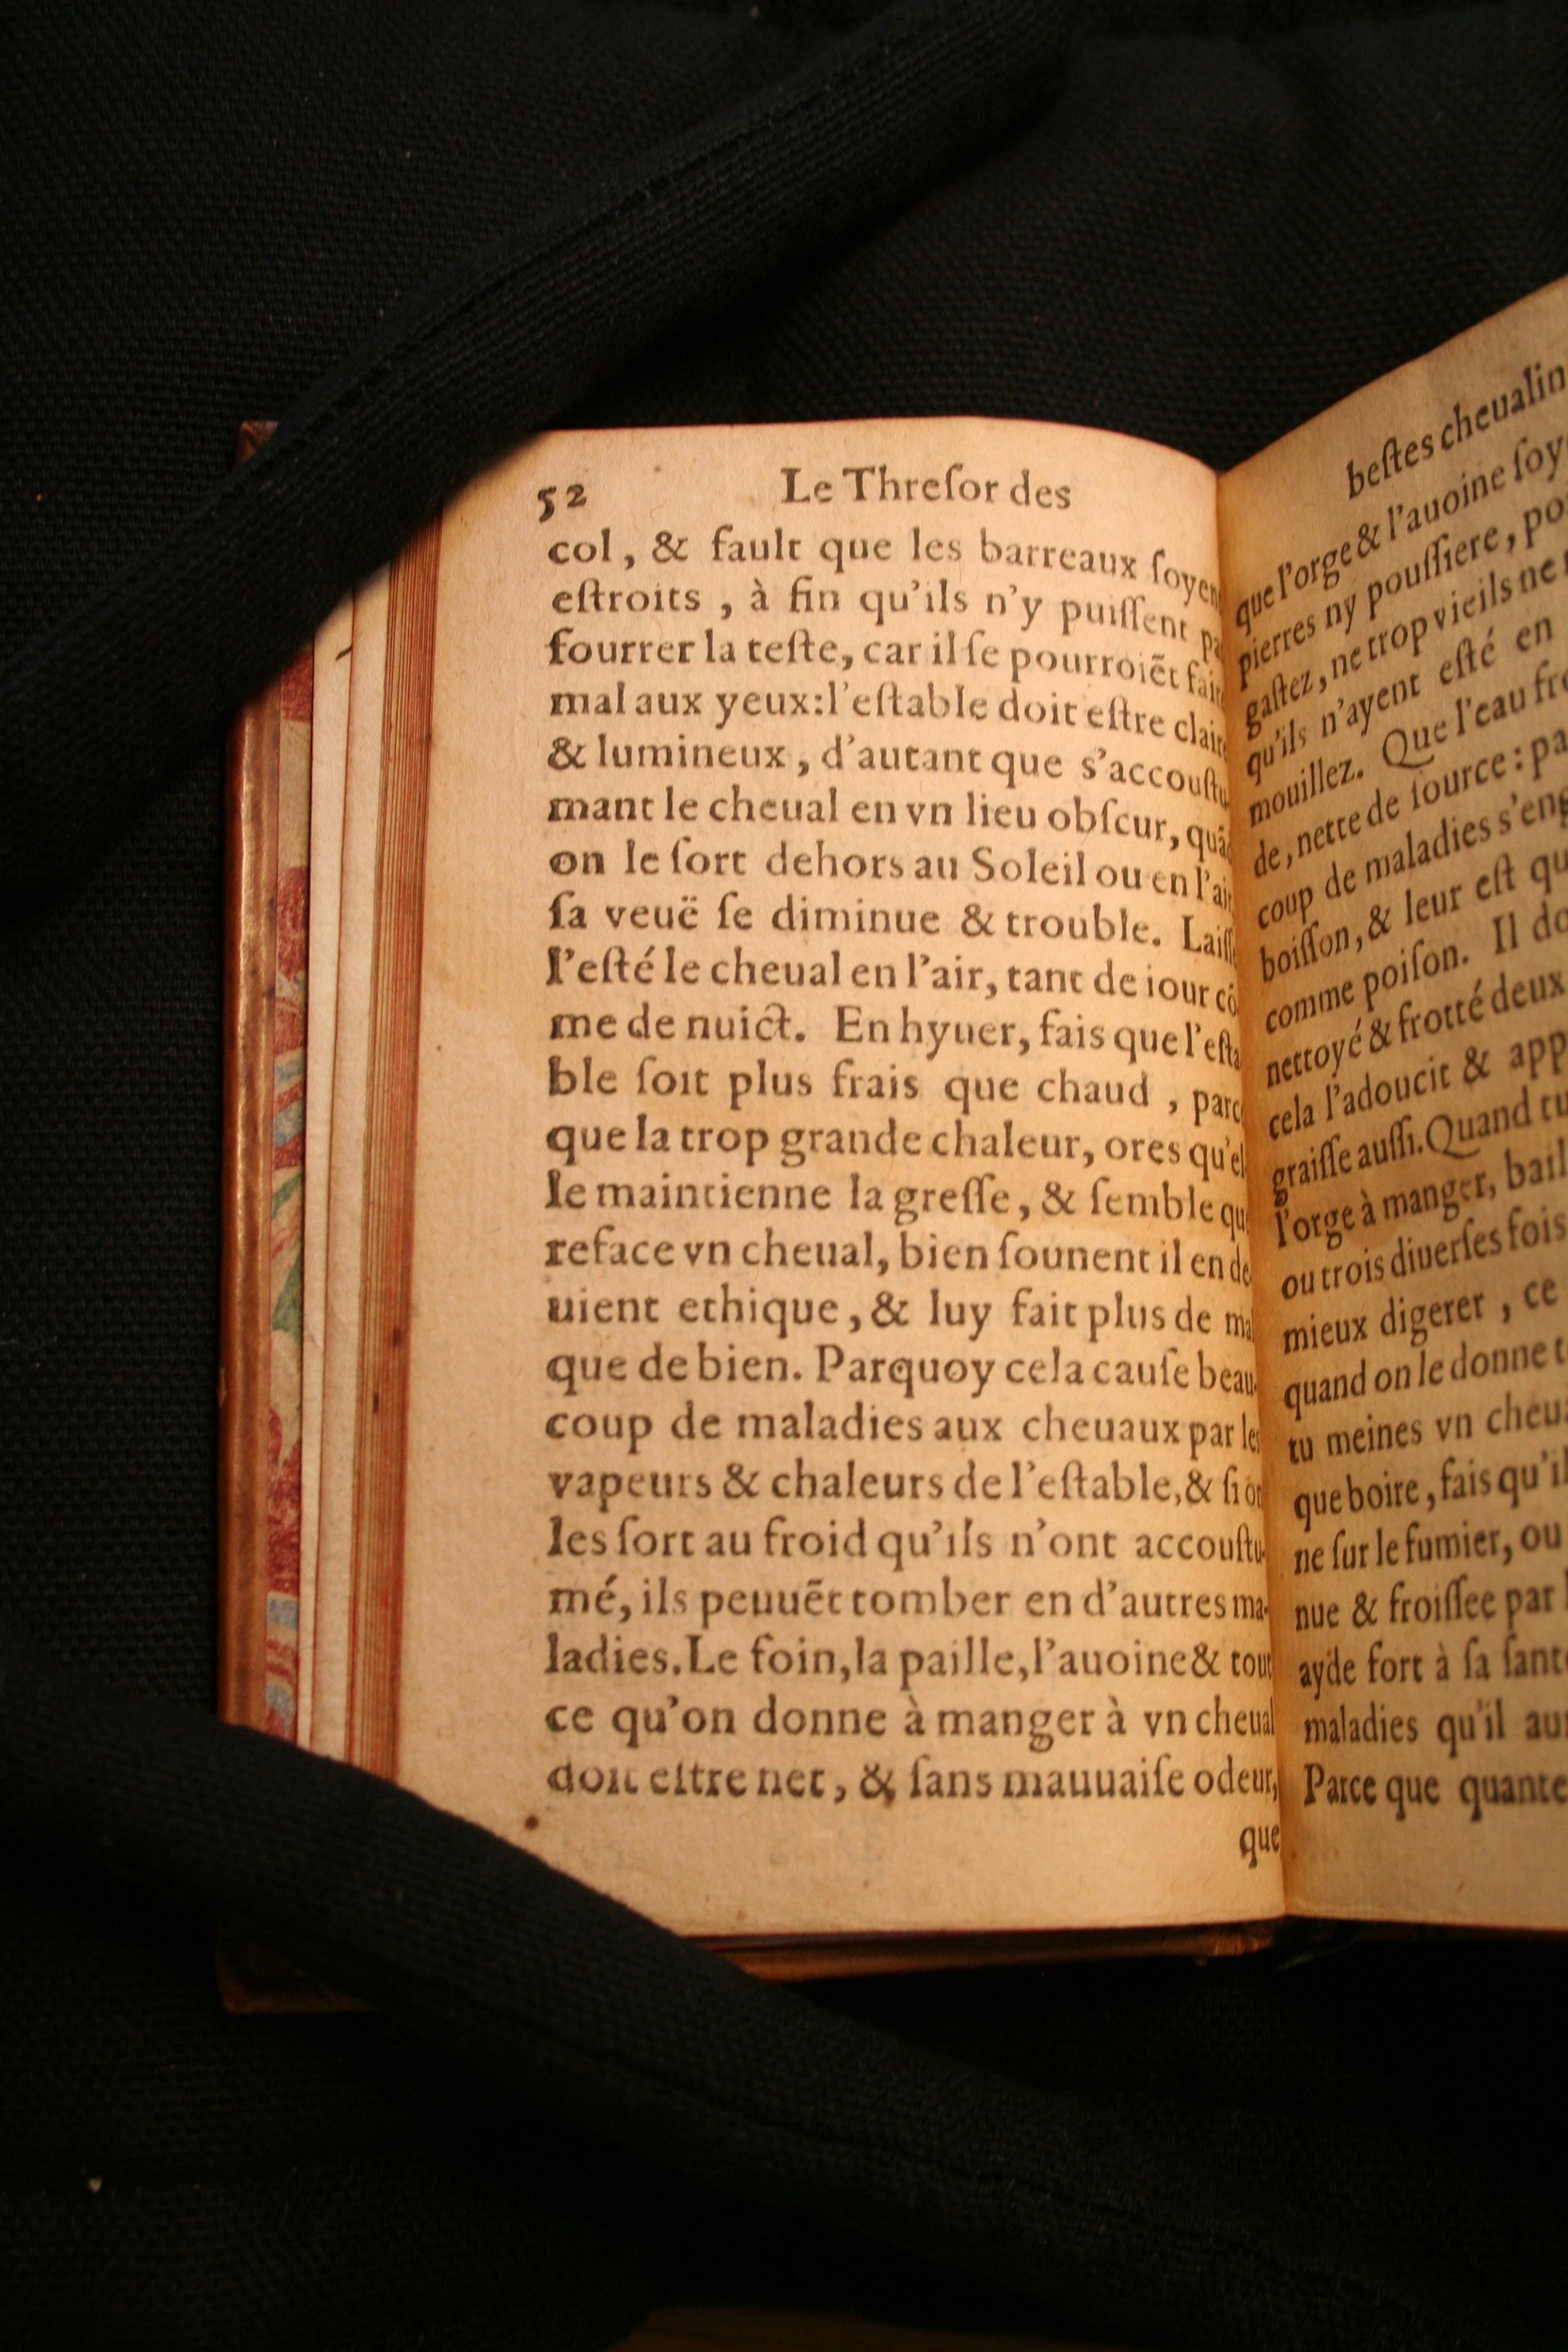 52 Le Threſor des
col, & fault que les barreaux ſoyen
eſtroits, à fin qu'ils n'y puiſſent pa
fourrer la teſte, car il ſe pourroiẽt fair
mal aux yeux: l'eſtable doit eſtre claire
& lumineux, d'autant que s'accouſtu
mant le cheual en vn lieu obſcur, quãd
on le ſort dehors au Soleil ou en l'air
ſa veuë ſe diminue & trouble. Laiſſe
l'eſté le cheual en l'air, tant de iour cõ
me de nuict. En hyuer, fais que l'eſta
ble ſoit plus frais que chaud, parce
que la trop grande chaleur, ores qu'el
le maintienne la greſſe, & ſemble que
reface vn cheual, bien ſounent il en de
uient ethique, & luy fait plus de mal
que de bien. Parquoy cela cauſe beau-
coup de maladies aux cheuaux par les
vapeurs & chaleurs de l'eſtable, & ſi on
les ſort au froid qu'ils n'ont accouſtu-
mé, ils peuuẽt tomber en d'autres ma-
ladies. Le foin, la paille, l'auoine & tout
ce qu'on donne à manger à vn cheual
doit eſtre net, & ſans mauuaiſe odeur,
que
beſtes cheualin
que l'orge & l'auoine ſoy
pierres ny pouſſiere, po
gaſtez, ne trop vieils ne
qu'ils n'ayent eſté en
mouillez. Que l'eau fro
de, nette de ſource: pa
coup de maladies s'eng
boiſſon, & leur eſt qu
comme poiſon. Il do
nettoyé & frotté deux
cela l'adoucit & app
graiſſe auſſi. Quand tu
l'orge à manger, bail
ou trois diuerſes fois
mieux digerer, ce
quand on le donne t
tu meines vn cheua
que boire, fais qu'il
ne ſur le fumier, ou
nue & froiſſee par l
ayde fort à ſa ſant
maladies qu'il au
Parce que quante